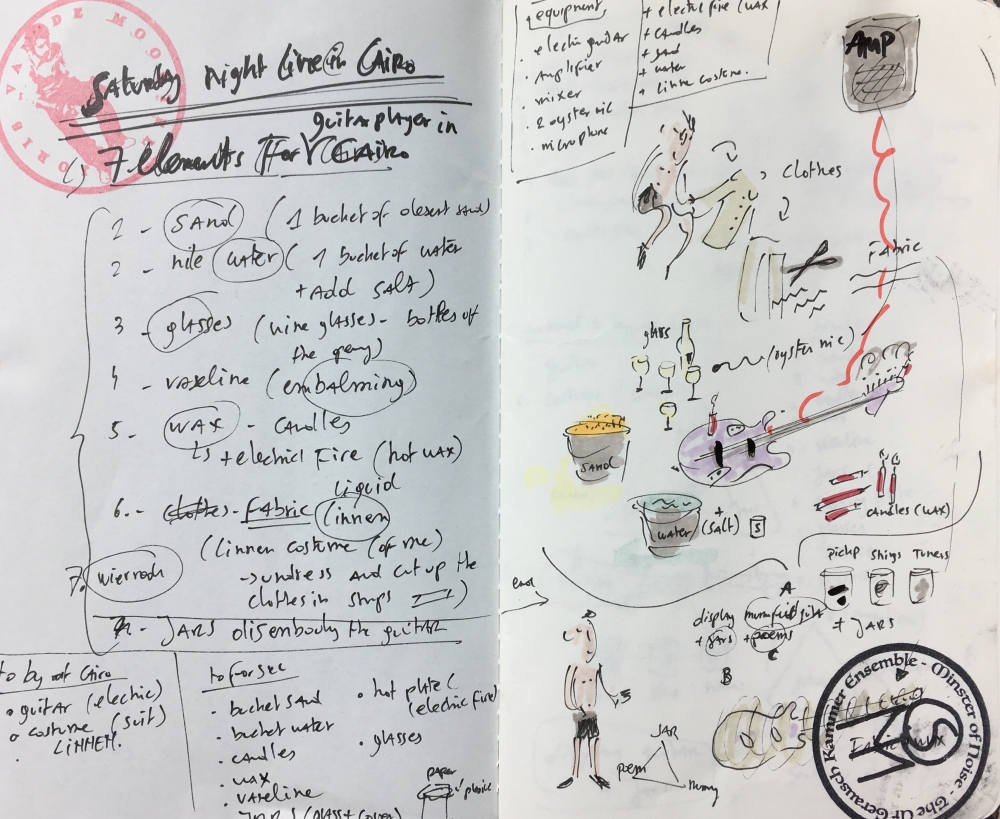 Saturday night live in Cairo
guitar player in
1) 7 elements For Cairo
1 - SAND (1 bucket of desert sand)
2 - nile water (1 bucket of water
+ Add SALT)
3 - glasses (wine glasses - bottles of
4 - vaseline (embalming)
5. - WAX - CANDLES
+ electric Fire (hot wax)
liquid
6. - clothes - FABRIC (linnen)
(Linnen costume (of me)
-> undress AND cut up the
clothes in strips
7. wierrook
- JARS disembody the guitar
to by out Cairo
• guitar (electric)
• costume (suit)
LINNEN.
to forsee
• bucket sand
• bucket water
• candles
• WAX
• vaseline
JARS (glass + cover)
• hot plate (
(electric fire)
• glasses
paper
equipment
• electric guitar
• Amplifier
• mixer
• 2 oyster mic
• microphone
+ electric fire (WAX
+ candles
+ sand
+ water
+ linne costume.
AMP
clothes
FABRIC
glass
(oyster mic)
SAND
WATER
+
(SALT)
S
CANDLES (WAX)
pickp Strings Tuners
+ JARS
end
A
display mummified guitar
+ JARS + poems
B
JAR
poem
The Af Gerausch Kammer Ensemble - Minster of Noise -